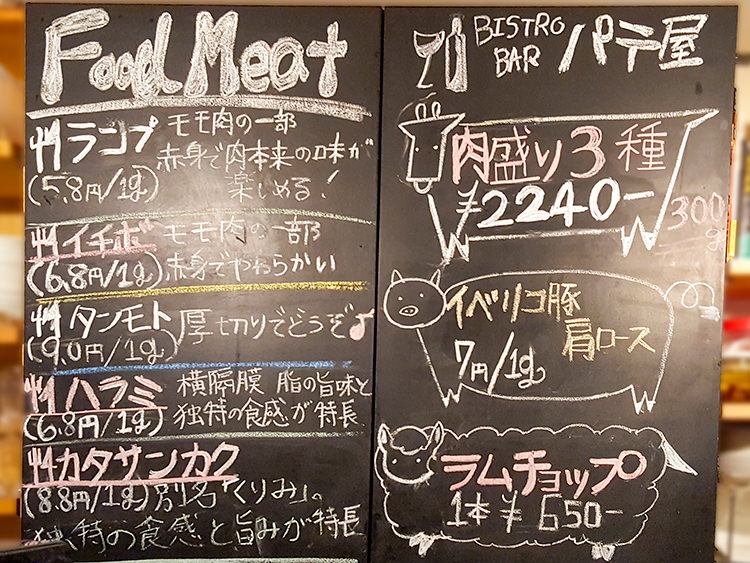 Food Meat
ランプ モモ肉の一部
赤身で肉本来の味が
(5.8円/1g) 楽しめる!
イチボ モモ肉の一部
(6.8円/1g) 赤身でやわらかい
タンモト 厚切りでどうぞ♪
(9.0円/1g)
ハラミ 横隔膜 脂の旨味と
(6.8円/1g) 独特の食感が特長
カタサンカク
(8.8円/1g) 別名「くりみ」。
独特の食感と旨みが特長
BISTRO
BAR パテ屋
肉盛り3種
¥2240- 300g
イベリコ豚
肩ロース
7円/1g
ラムチョップ
1本 ¥650-